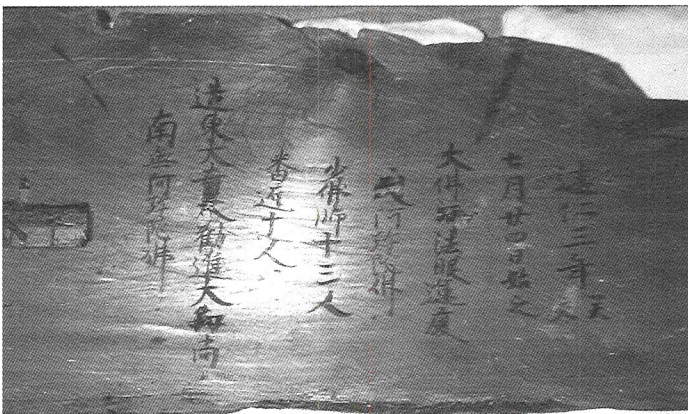 建仁三年
七月廿四日始之
大佛師法眼運慶
阿弥陀佛
小佛師十三人
番匠十人
造東大寺大勧進大和尚
南無阿弥陀佛